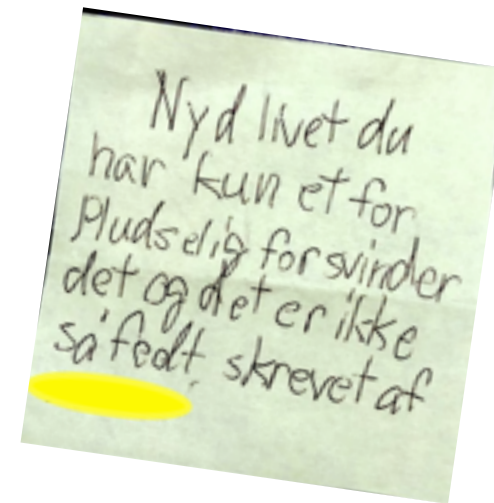 Nyd livet du
har kun et for
pludselig forsvinder
det og det er ikke
så fedt, skrevet af